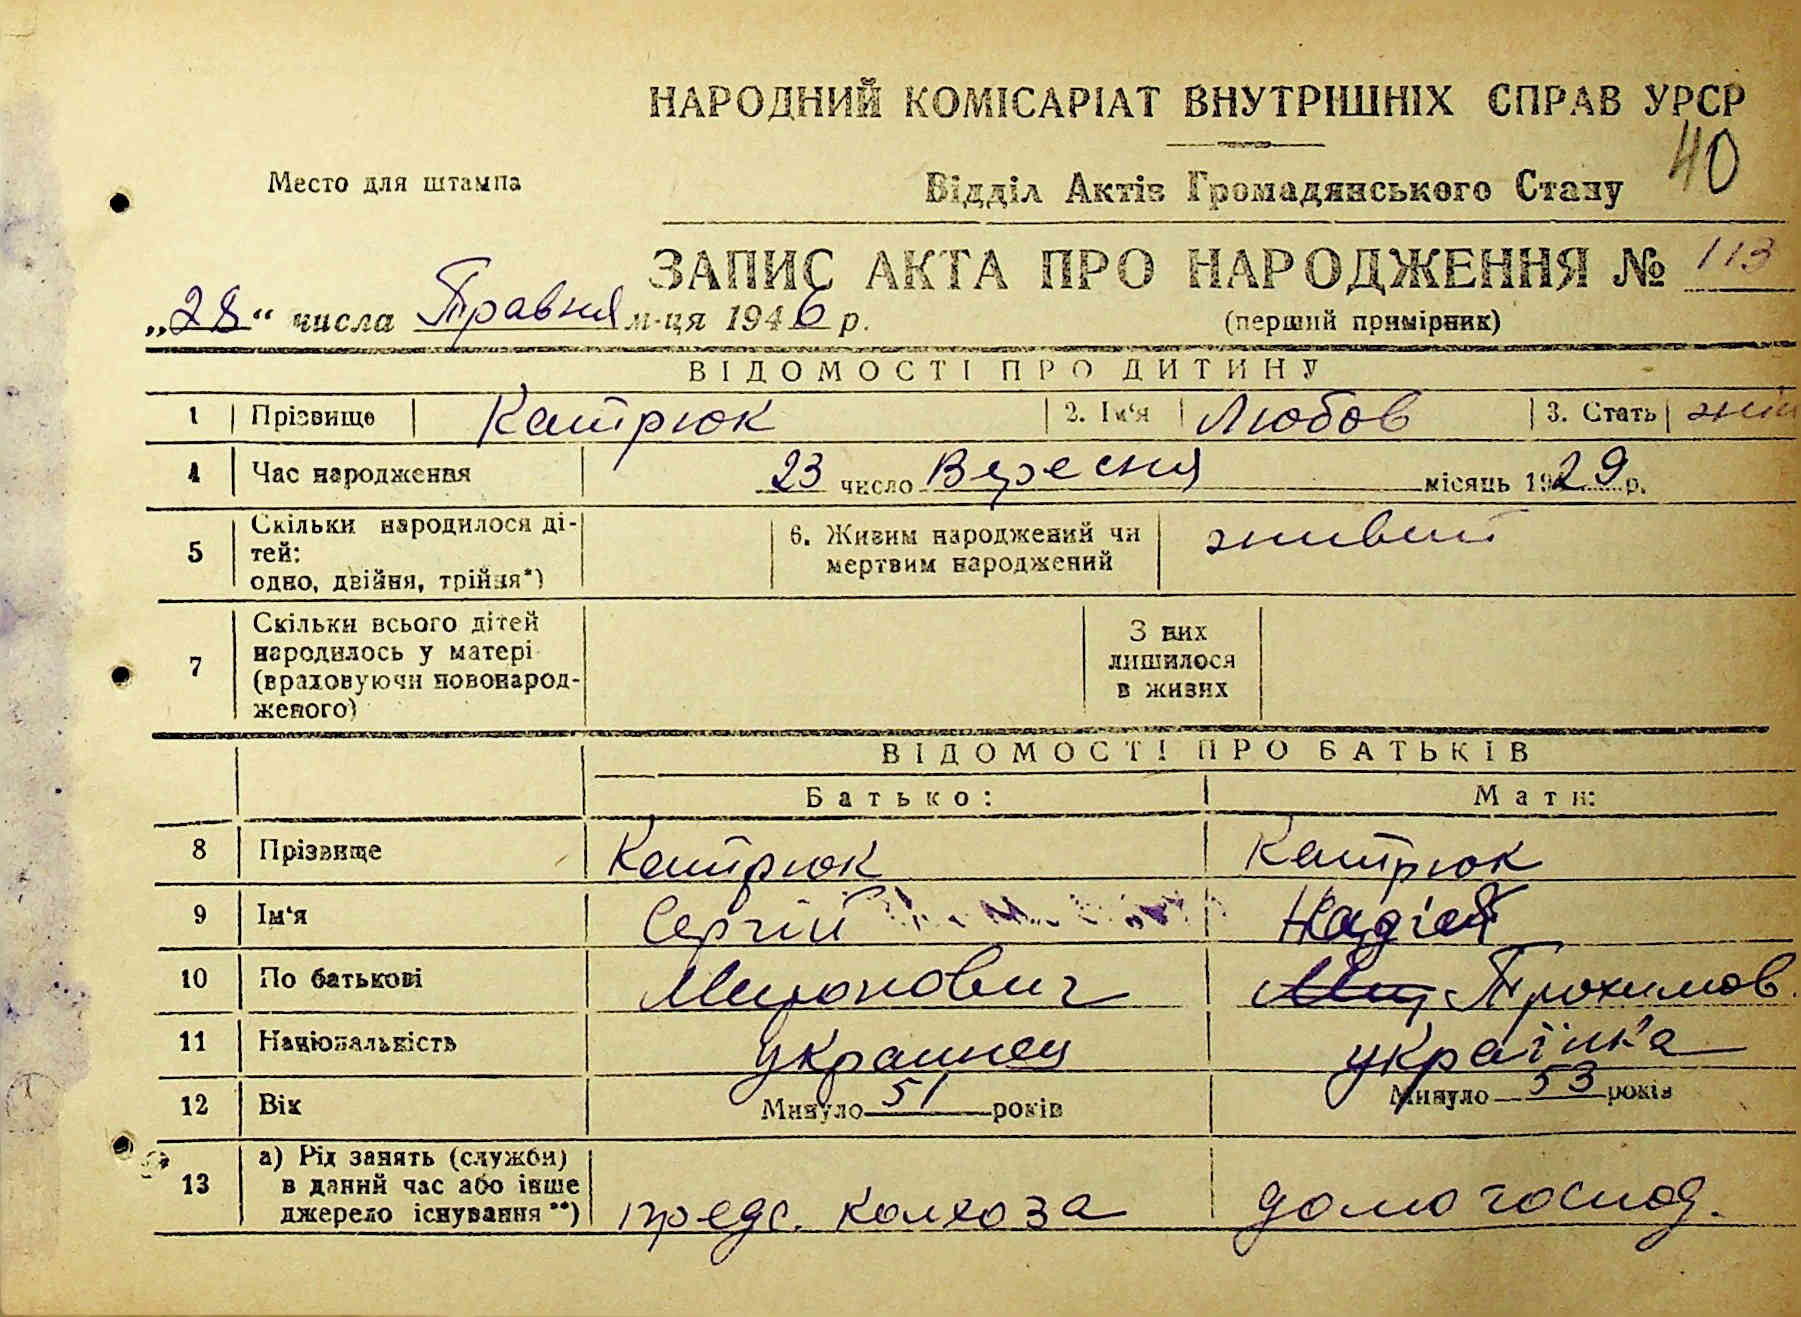 НАРОДНИЙ КОМІСАРІАТ ВНУТРІШНІХ СПРАВ УРСР
40
Место для штампа
Відділ Актів Громадянського Стану
ЗАПИС АКТА ПРО НАРОДЖЕННЯ № 113
„28“ числа Травня м-ця 1946 р.
(перший примірник)
ВІДОМОСТІ ПРО ДИТИНУ
1 Прізвище Катрюк 2. Ім‘я Любов 3. Стать
4 Час народження 23 число Вересня місяць 1929 р.
5 Скільки народилося ді-
тей:
одно, двійня, трійня*)
6. Живим народжений чи
мертвим народжений
живий
7 Скільки всього дітей
народилось у матері
(враховуючи новонарод-
женого)
З них
лишилося
в живих
ВІДОМОСТІ ПРО БАТЬКІВ
Батько: Мати:
8 Прізвище Катрюк Катрюк
9 Ім‘я Сергій Надія
10 По батькові Миронович Прохимов.
11 Національність украинец українка
12 Вік Минуло 51 років Минуло 53 років
13 а) Рід занять (служби)
в даний час або інше
джерело існування**)
предс. колхоза домогоспод.